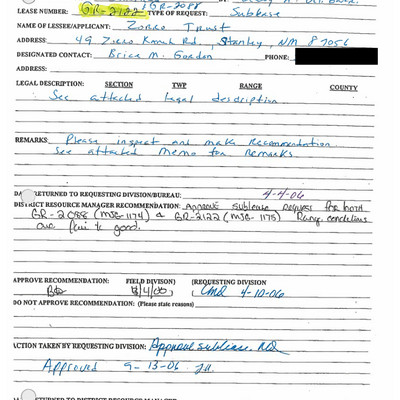 LEASE NUMBER: GR-2122 / GR-2088 TYPE OF REQUEST: Sublease
NAME OF LESSEE/APPLICANT: Zorro Trust
ADDRESS: 49 Zorro Ranch Rd., Stanley, NM 87056
DESIGNATED CONTACT: Brice M. Gordon PHONE:
ADDRESS:
LEGAL DESCRIPTION: SECTION TWP RANGE COUNTY
See attached legal description
REMARKS: Please inspect and make Recommendation.
See attached Memo for Remarks.
DA RETURNED TO REQUESTING DIVISION/BUREAU: 4-4-06
DISTRICT RESOURCE MANAGER RECOMMENDATION: Approve sublease request for both
GR-2088 (MJG-1174) & GR-2122 (MJG-1175) Range conditions
are fair to good.
APPROVE RECOMMENDATION: FIELD DIVISION) (REQUESTING DIVISION
4-10-06
DO NOT APPROVE RECOMMENDATION: (Please state reasons)
ACTION TAKEN BY REQUESTING DIVISION: Approve sublease.
Approved 9-13-06
RETURNED TO DISTRICT RESOURCE MANAGER